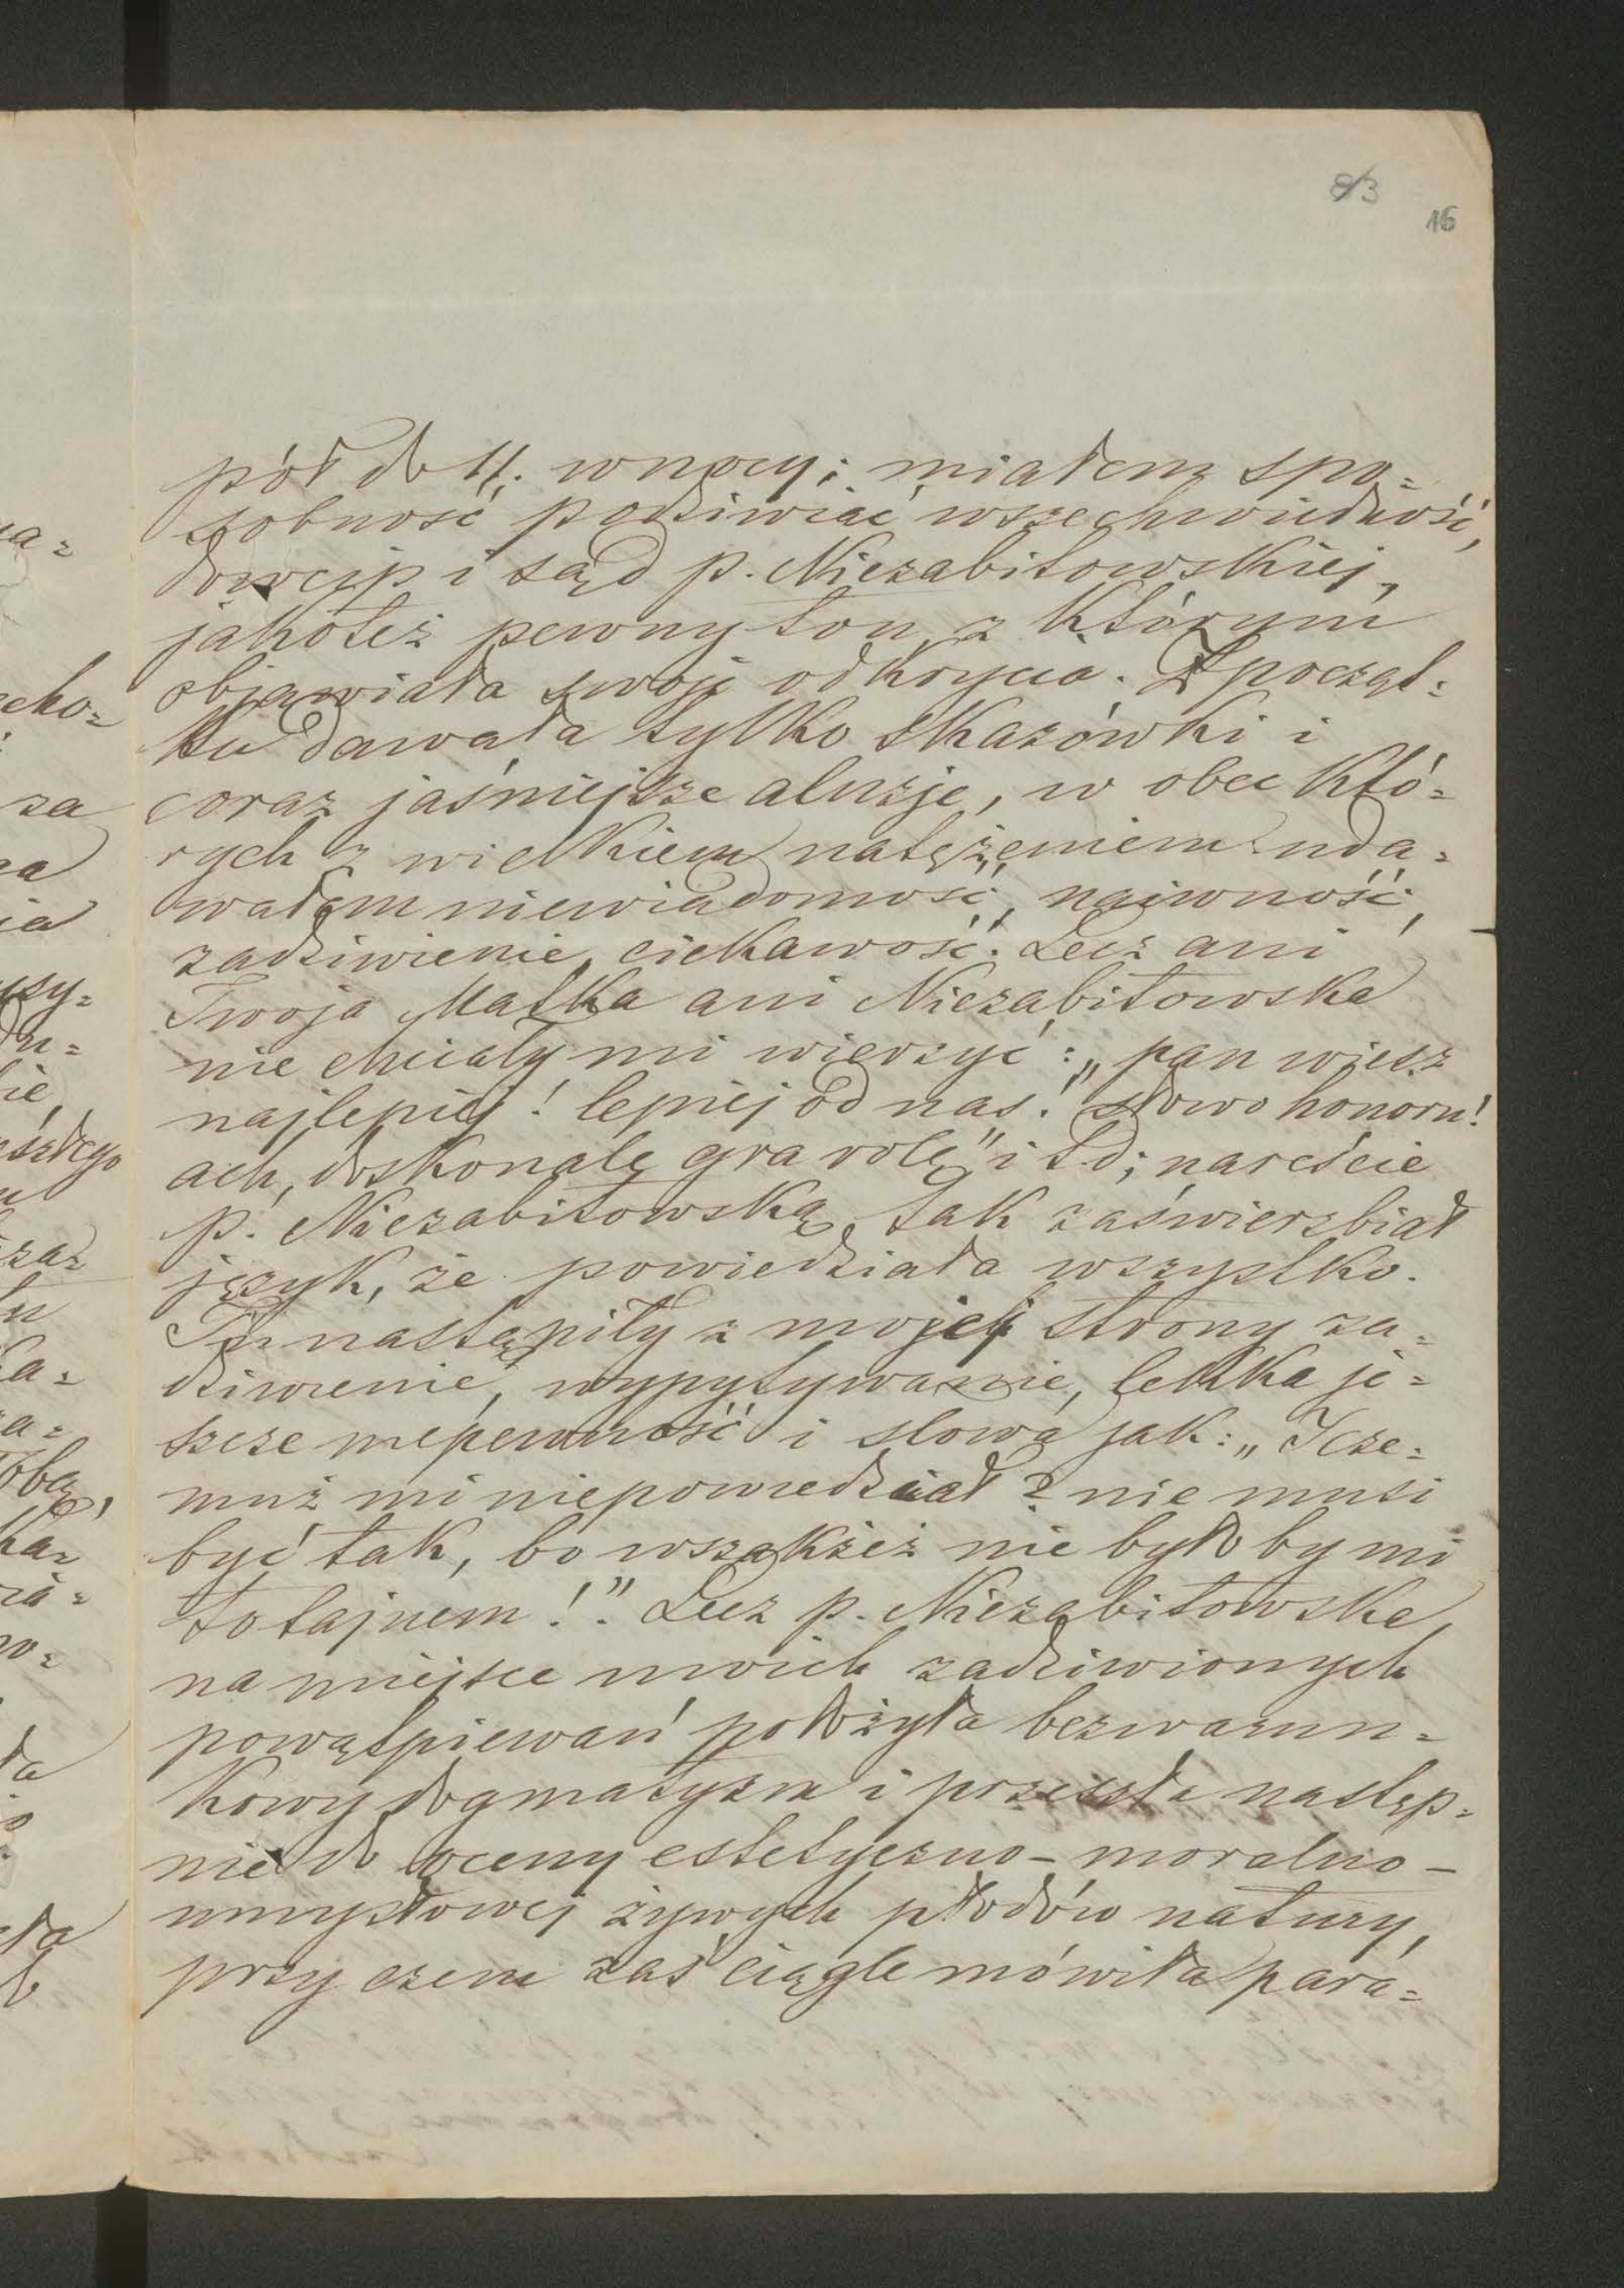 8/3
16
pół do 11. w nocy; miałem spo=
sobność podziwiać wszechwiedność,
dowcip i sąd p. Niezabitowskiej,
jakoteż pewny ton z którym
objawiała swoje odkrycia. Z począt=
ku dawała tylko skazówki i
coraz jaśniejsze aluzje, w obec któ=
rych z wielkiem natężeniem uda=
wałem niewiadomość, naiwność,
zadziwienie, ciekawość. Lecz ani
Twoja Matka ani Niezabitowska
nie chciały mi wierzyć: „pan wiesz
najlepiej! lepiej od nas! słowo honoru!
ach, doskonale gra rolę" i t.d; nareście
p. Niezabitowską tak zaświerzbiał
język, że powiedziała wszystko.
Tu nastąpiły z mojej strony za=
dziwienie, wypytywanie, lekka je=
szcze niepewność i słowa jak: „I cze=
muż mi niepowiedział? nie musi
być tak, bo wszakżeż nie było by mi
to tajnem!". Lecz p. Niezabitowska,
na miejsce moich zadziwionych
powątpiewań położyła bezwarun=
kowy dogmatyzm i przeszła następ=
nie do oceny estetyczno-moralno-
umysłowej żywych płodów natury,
przy czem zaś ciągle mówiła para=